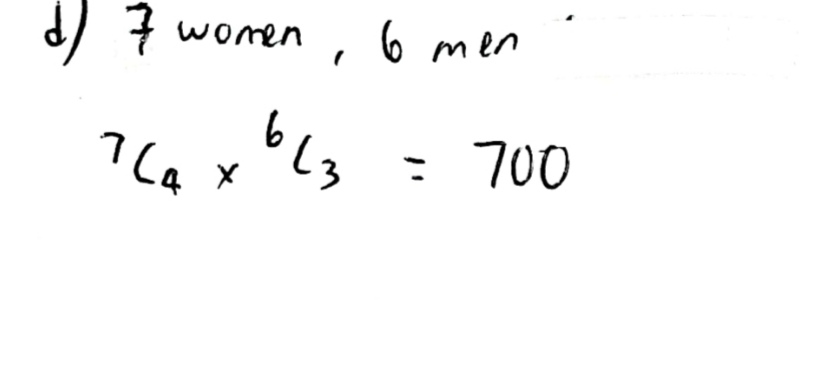 d) 7 women, 6 men
⁷C₄ × ⁶C₃ = 700